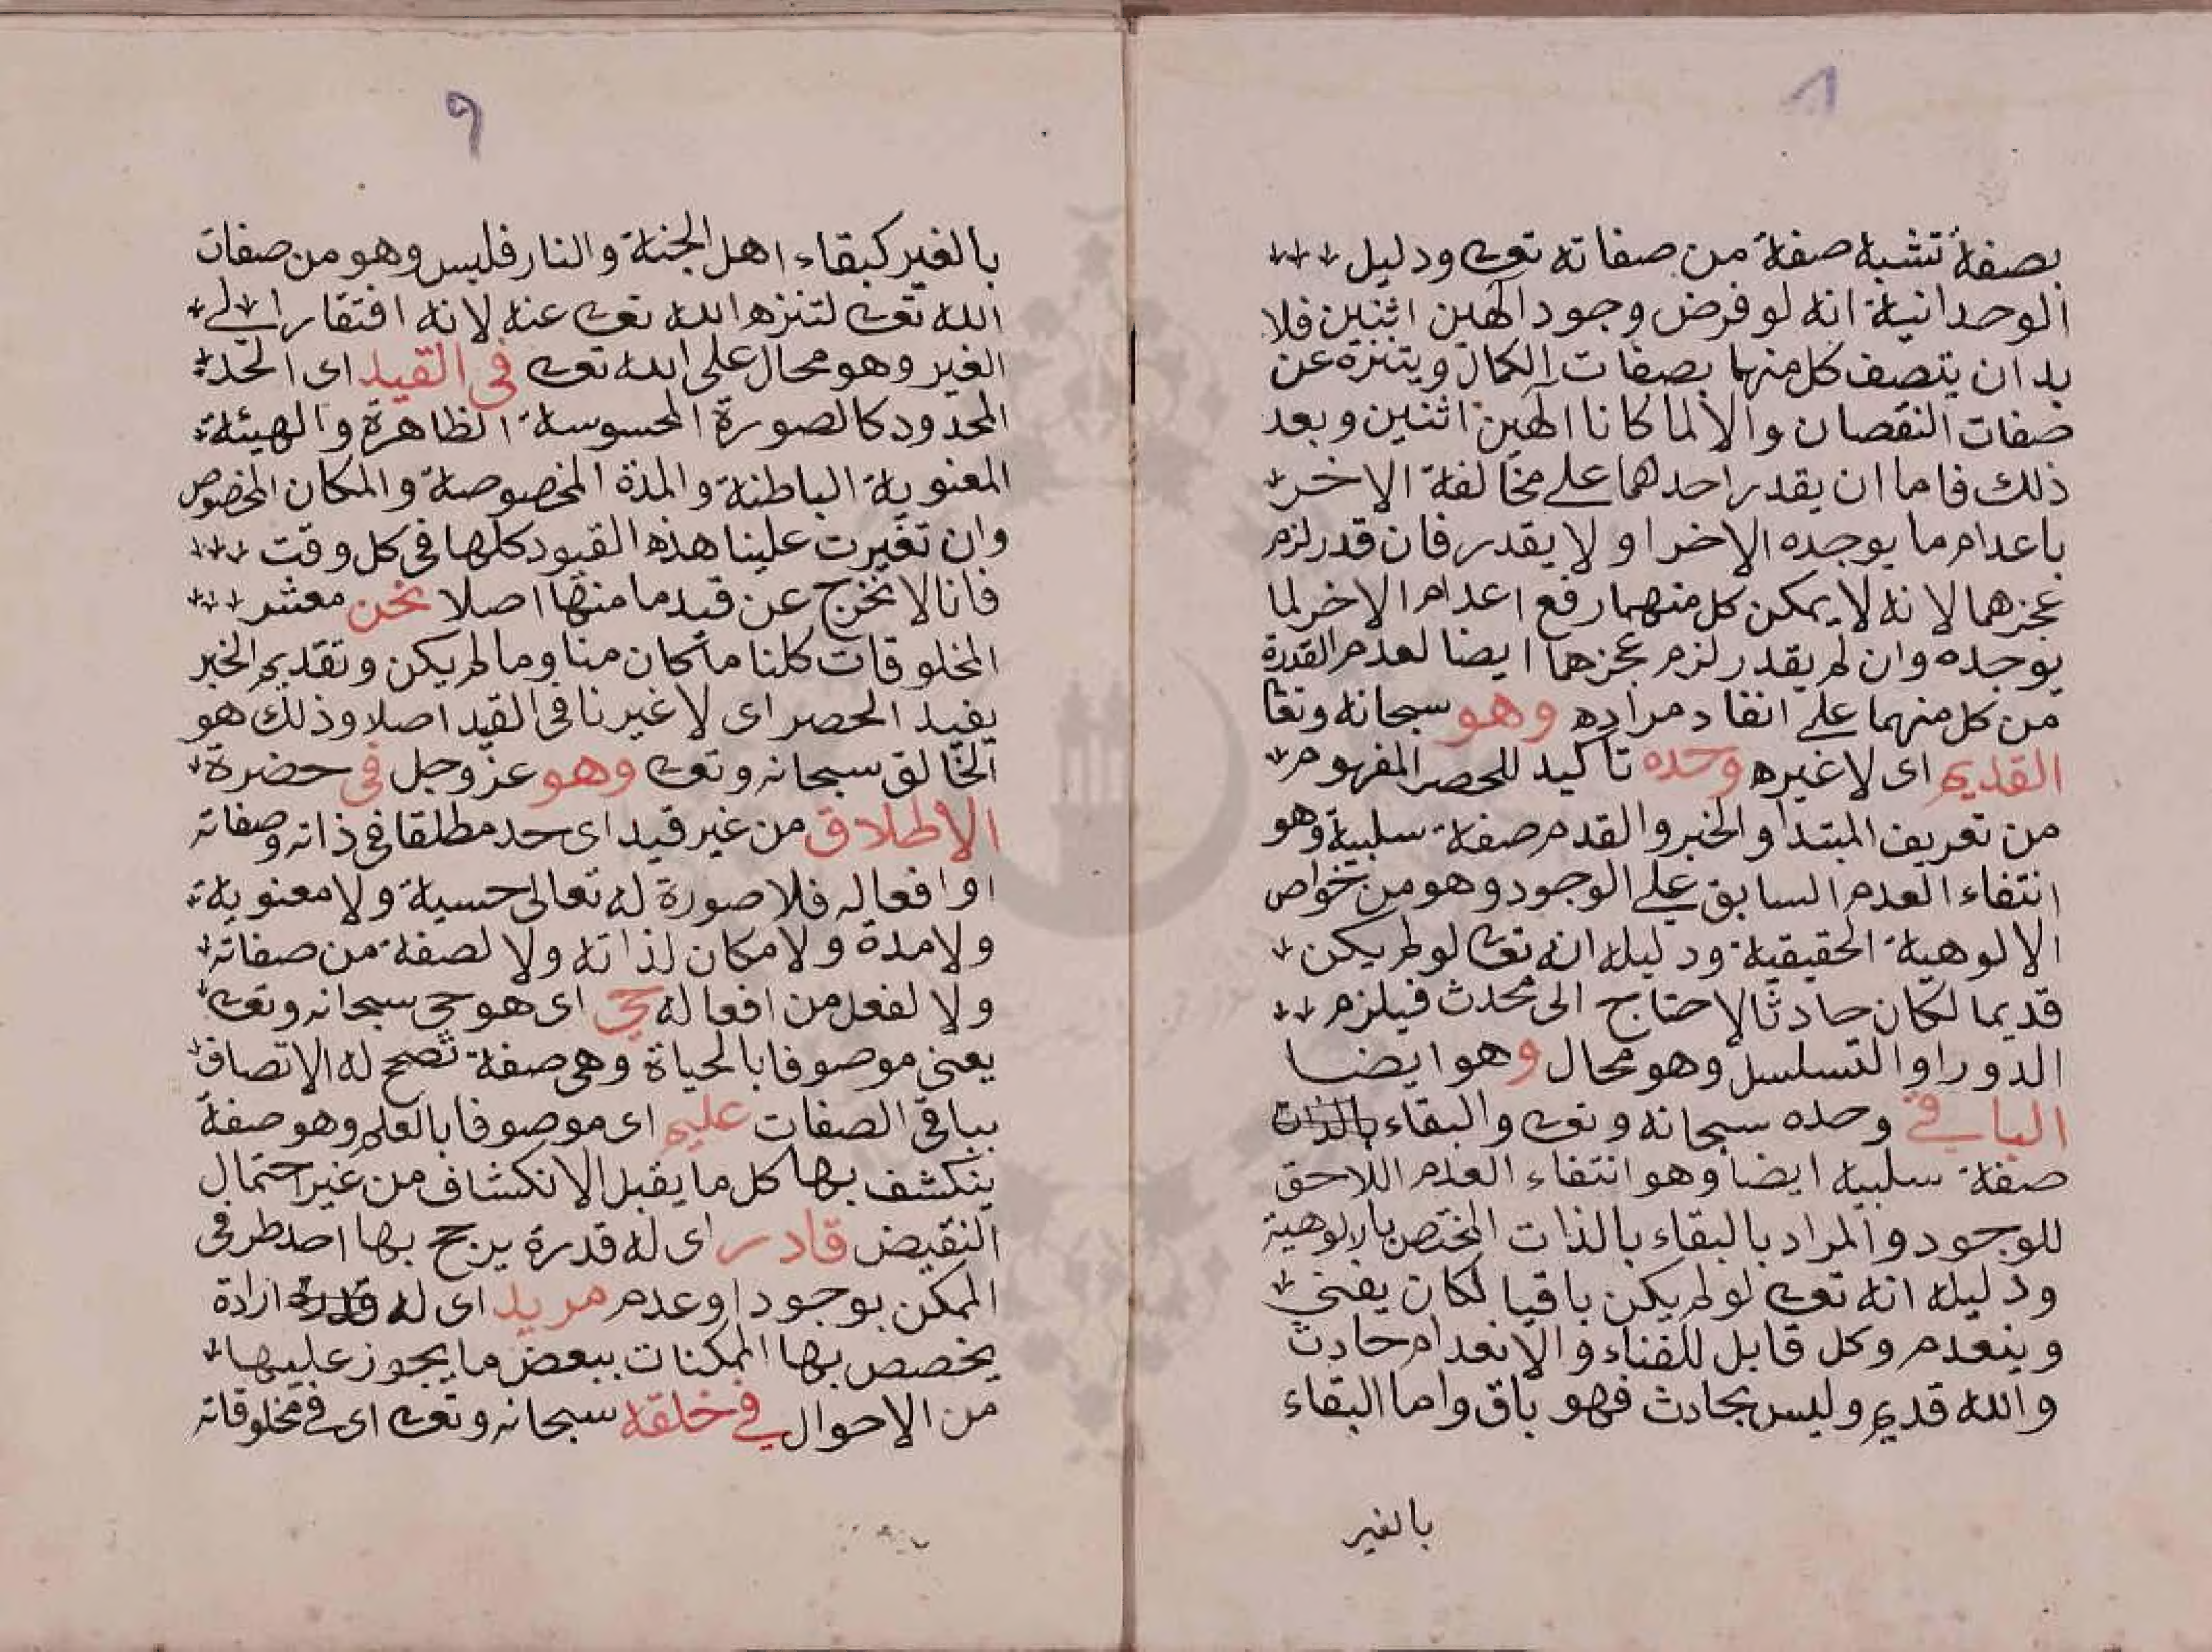 ٨
بصفة تشبه صفة من صفاته تعا ودليل
الوحدانية انه لو فرض وجود الهين اثنين فلا
بد ان يتصف كل منهما بصفات الكمال ويتنزه عن
صفات النقصان والا لما كانا الهين اثنين وبعد
ذلك فاما ان يقدر احدهما على مخالفة الاخر
باعدام ما يوجده الاخر او لا يقدر فان قدر لزم
عجزهما لانه لا يمكن كل منهما رفع اعدام الاخر لما
يوجده وان لم يقدر لزم عجزهما ايضا لعدم القدرة
من كل منهما على انفاد مراده وهو سبحانه وتعا
القديم اى لا غيره وحده تاكيد للحصر المفهوم
من تعريف المبتدا والخبر والقدم صفة سلبية وهو
انتفاء العدم السابق على الوجود وهو من خواص
الالوهية الحقيقية ودليله انه تعا لو لم يكن
قديما لكان حادثا لاحتاج الى محدث فيلزم
الدور او التسلسل وهو محال وهو ايضا
الباقي وحده سبحانه وتعا والبقاء بالذات
صفة سلبية ايضا وهو انتفاء العدم اللاحق
للوجود والمراد بالبقاء بالذات المختص بالالوهية
ودليله انه تعا لو لم يكن باقيا لكان يفني
وينعدم وكل قابل للفناء والانعدام حادث
والله قديم وليس بحادث فهو باق واما البقاء
بالغير
٩
بالغير كبقاء اهل الجنة والنار فليس وهو من صفات
الله تعا لتنزه الله تعا عنه لانه افتقار الى
الغير وهو محال على الله تعا في القيد اى الحد
المحدود كالصورة المحسوسة الظاهرة والهيئة
المعنوية الباطنة والمدة المخصوصة والمكان المخصوص
وان تغيرت علينا هذه القيود كلها فى كل وقت
فانا لا نخرج عن قيد ما منها اصلا نحن معشر
المخلوقات كلنا ما كان منا وما لم يكن وتقديم الخبر
يفيد الحصر اى لا غيرنا فى القيد اصلا وذلك هو
الخالق سبحانه وتعا وهو عز وجل فى حضرة
الاطلاق من غير قيد اى حد مطلقا فى ذاته وصفاته
او افعاله فلا صورة له تعالى حسية ولا معنوية
ولا مدة ولا مكان لذاته ولا لصفة من صفاته
ولا لفعل من افعاله حي اى هو حي سبحانه وتعا
يعنى موصوفا بالحياة وهى صفة تصحح له الاتصاف
بباقى الصفات عليم اى موصوفا بالعلم وهو صفة
ينكشف بها كل ما يقبل الانكشاف من غير احتمال
النقيض قادر اى له قدرة يرجح بها احد طرفى
الممكن بوجود او عدم مريد اى له قدرة ارادة
يخصص بها الممكنات ببعض ما يجوز عليها
من الاحوال في خلقه سبحانه وتعا اى في مخلوقاته